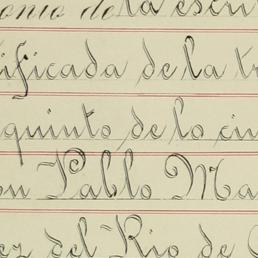 onio de la escri
tificada de la tr
quinto de lo civ
on Pablo Ma
ez del Rio de